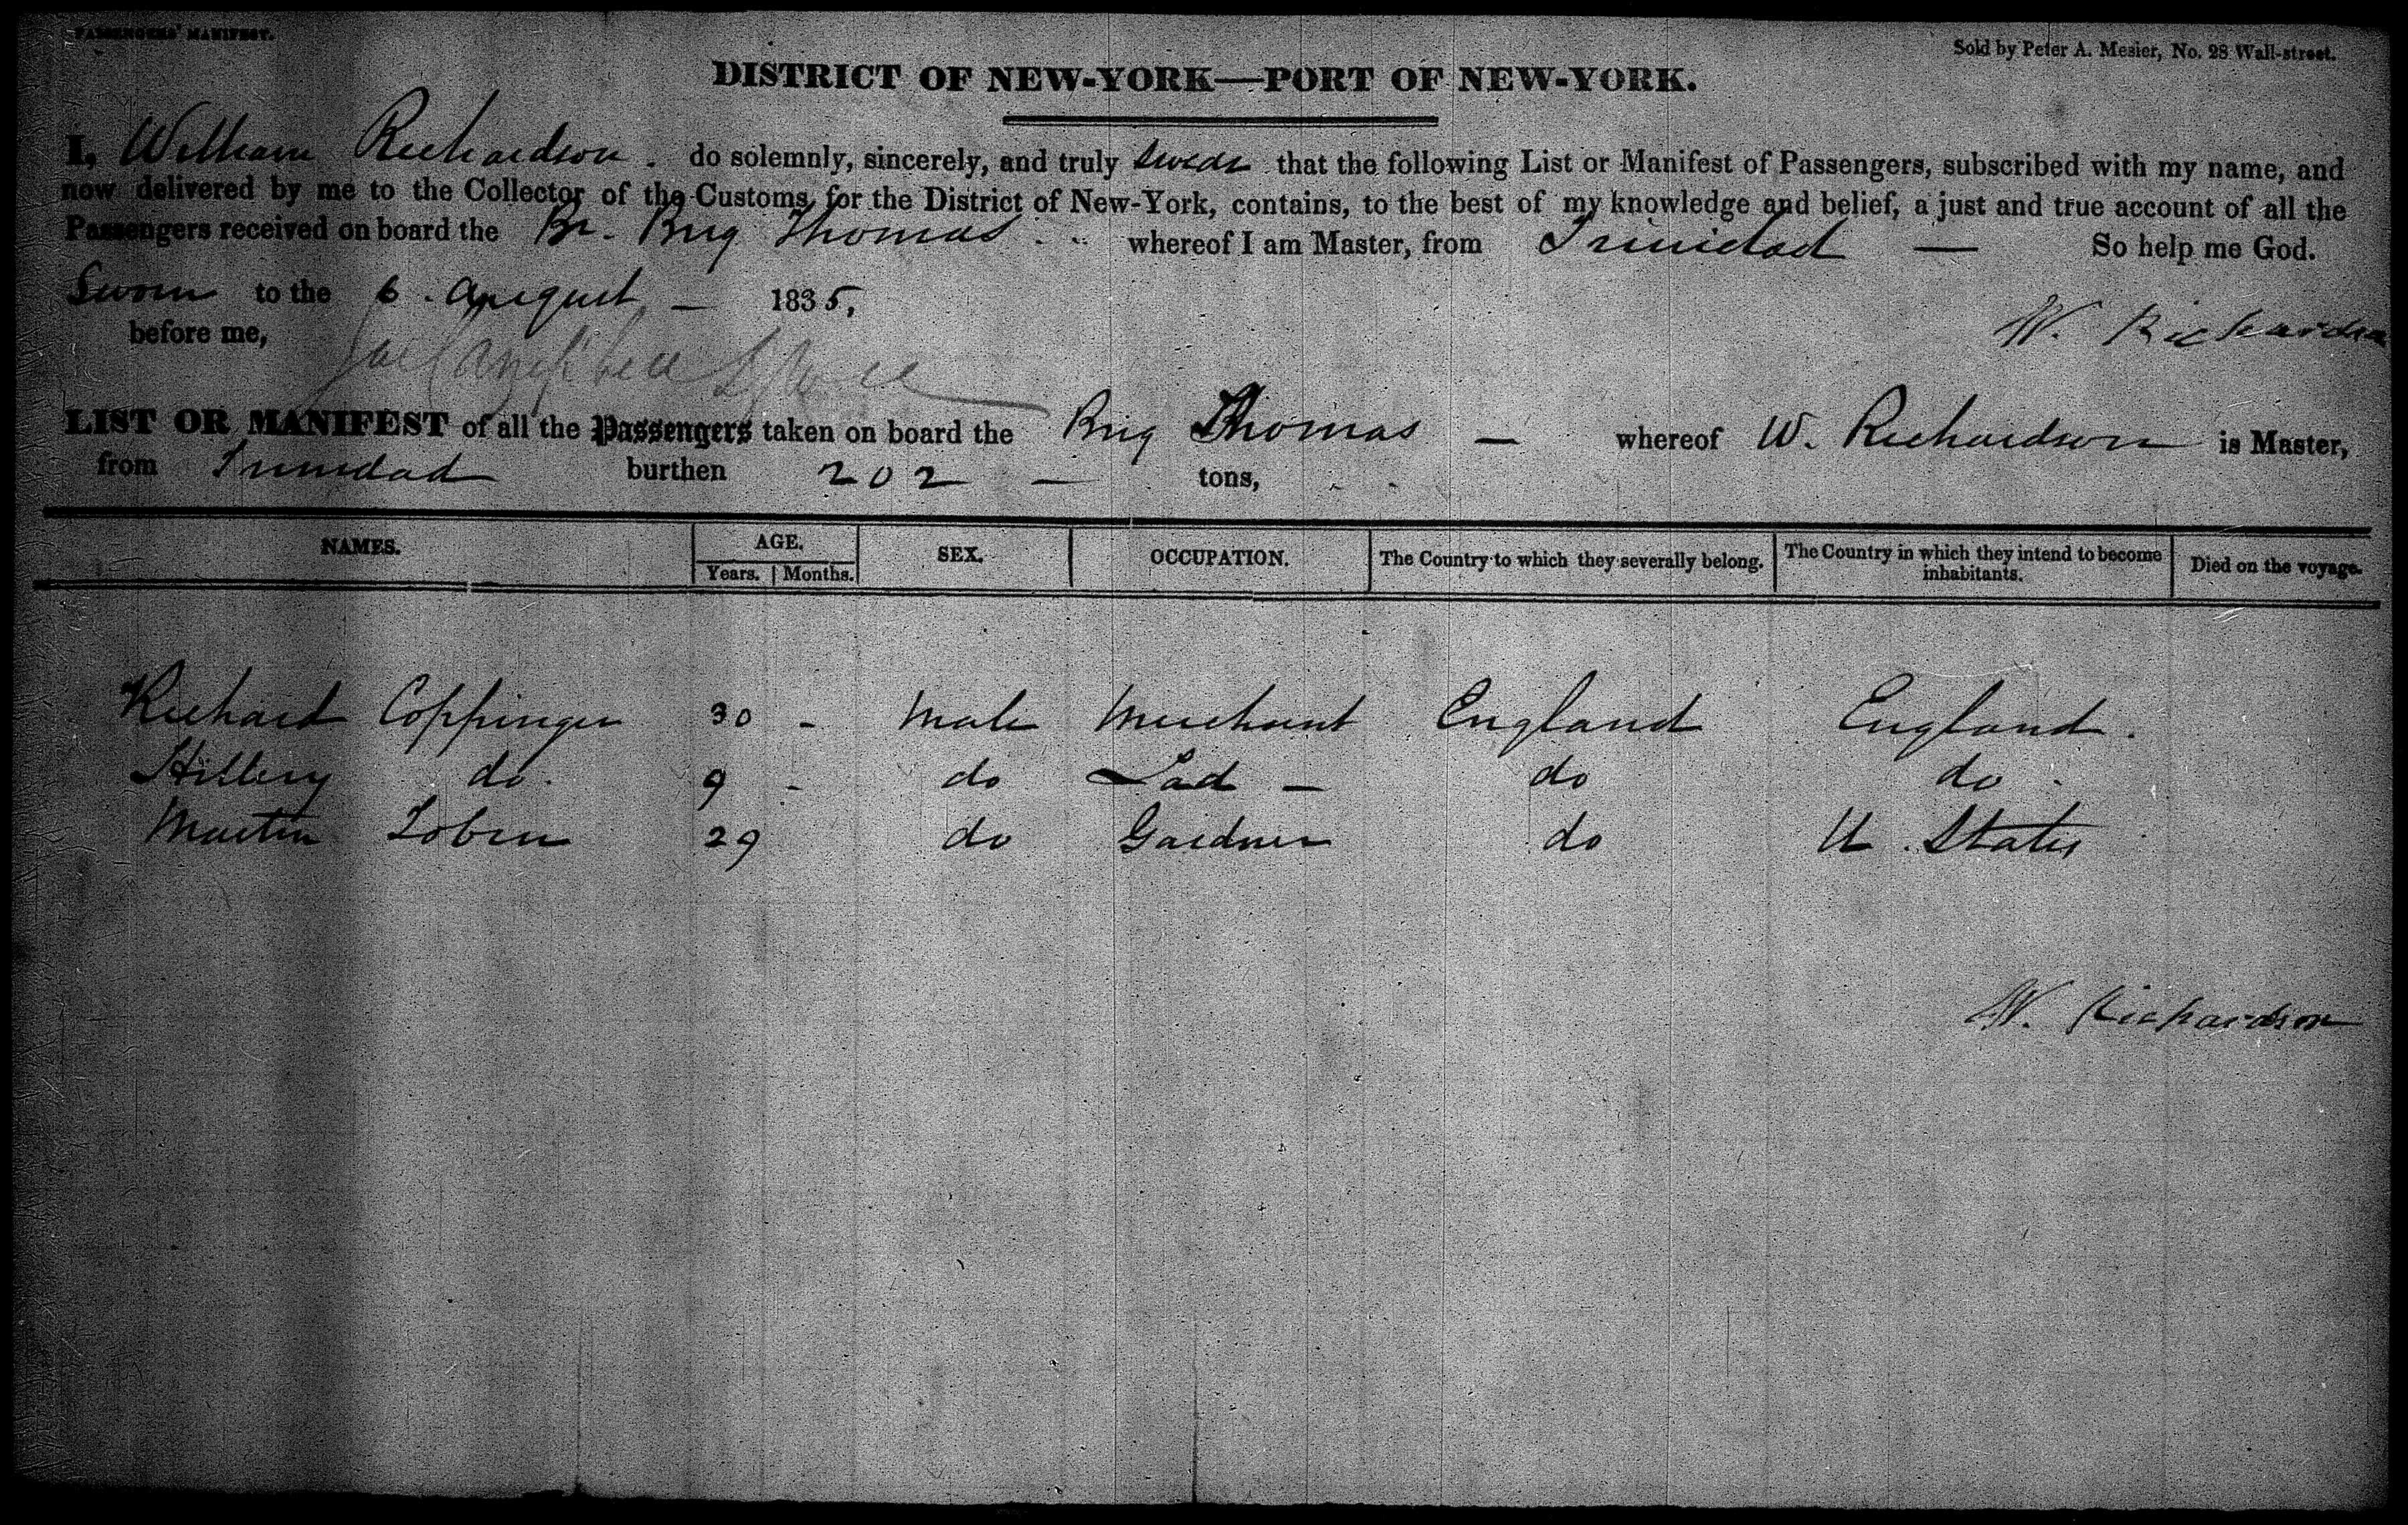 PASSENGERS' MANIFEST.
Sold by Peter A. Mesier, No. 28 Wall-street.
DISTRICT OF NEW-YORK—PORT OF NEW-YORK.
I, William Richardson. do solemnly, sincerely, and truly swear that the following List or Manifest of Passengers, subscribed with my name, and
now delivered by me to the Collector of the Customs for the District of New-York, contains, to the best of my knowledge and belief, a just and true account of all the
Passengers received on board the Br. Brig Thomas whereof I am Master, from Trinidad — So help me God.
Sworn to the 6. August — 1835,
before me,
W. Richardson
Campbell
LIST OR MANIFEST of all the Passengers taken on board the Brig Thomas — whereof W. Richardson is Master,
from Trinidad burthen 202 — tons,
NAMES. AGE. SEX. OCCUPATION. The Country to which they severally belong. The Country in which they intend to become inhabitants. Died on the voyage.
Years. Months.
Richard Coppinger 30 - Male Merchant England England.
Hillery do. 9 - do Lad — do do.
Martin Tobin 29 do Gardner do U. States
W. Richardson